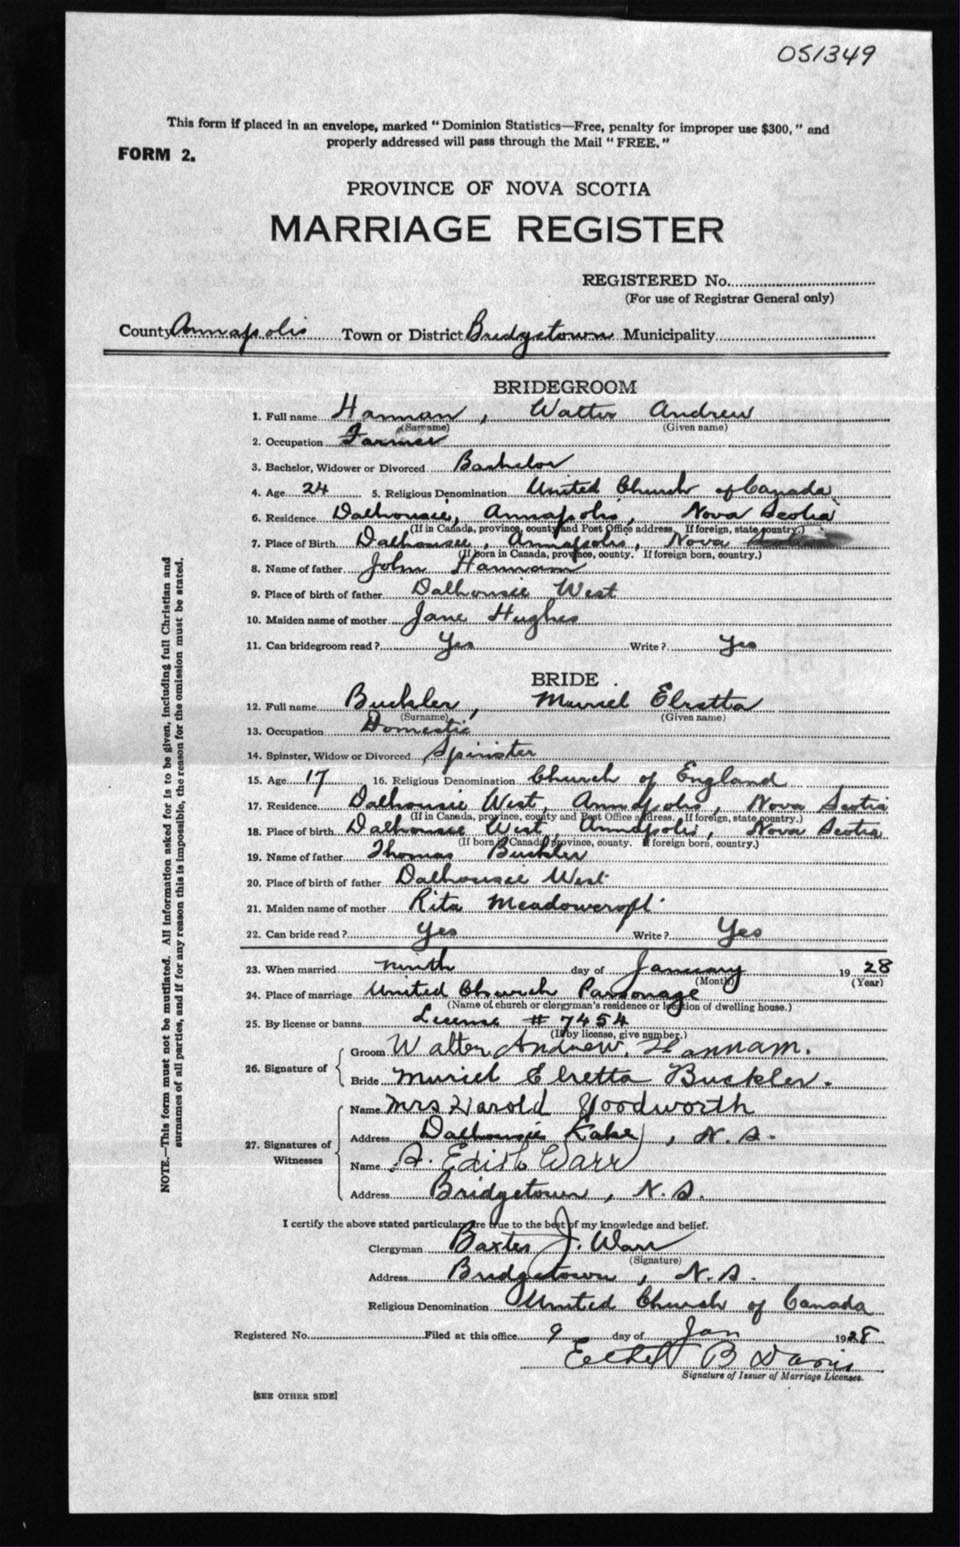 051349
This form if placed in an envelope, marked " Dominion Statistics—Free, penalty for improper use $300, " and
properly addressed will pass through the Mail " FREE. "
FORM 2.
PROVINCE OF NOVA SCOTIA
MARRIAGE REGISTER
REGISTERED No.
(For use of Registrar General only)
County Annapolis Town or District Bridgetown Municipality
BRIDEGROOM
1. Full name Hannan, Walter Andrew
(Surname) (Given name)
2. Occupation Farmer
3. Bachelor, Widower or Divorced Bachelor
4. Age 24 5. Religious Denomination United Church of Canada
6. Residence Dalhousie, Annapolis, Nova Scotia
(If in Canada, province, county and Post Office address. If foreign, state country.)
7. Place of Birth Dalhousie, Annapolis, Nova Scotia
(If born in Canada, province, county. If foreign born, country.)
8. Name of father John Hannam
9. Place of birth of father Dalhousie West
10. Maiden name of mother Jane Hughes
11. Can bridegroom read? Yes Write? Yes
BRIDE
12. Full name Buckler, Muriel Elretta
(Surname) (Given name)
13. Occupation Domestic
14. Spinster, Widow or Divorced Spinister
15. Age 17 16. Religious Denomination Church of England
17. Residence Dalhousie West, Annapolis, Nova Scotia
(If in Canada, province, county and Post Office address. If foreign, state country.)
18. Place of birth Dalhousie West, Annapolis, Nova Scotia
(If born in Canada, province, county. If foreign born, country.)
19. Name of father Thomas Buckler
20. Place of birth of father Dalhousie West
21. Maiden name of mother Rita Meadowcroft
22. Can bride read? Yes Write? Yes
23. When married ninth day of January 19 28
(Month) (Year)
24. Place of marriage United Church Parsonage
(Name of church or clergyman's residence or location of dwelling house.)
25. By license or banns License # 7454
(If by license, give number.)
26. Signature of
Groom Walter Andrew Hannam.
Bride Muriel Elretta Buckler.
27. Signatures of Witnesses
Name Mrs Harold Woodworth
Address Dalhousie Lake, N.S.
Name A. Edith Warr
Address Bridgetown, N.S.
I certify the above stated particulars are true to the best of my knowledge and belief.
Clergyman Baxter J. Warr
(Signature)
Address Bridgetown, N.S.
Religious Denomination United Church of Canada
Registered No. Filed at this office 9 day of Jan 1928
Ethel B Davis
Signature of Issuer of Marriage Licenses.
[SEE OTHER SIDE]
NOTE.—This form must not be mutilated. All information asked for is to be given, including full Christian and
surnames of all parties, and if for any reason this is impossible, the reason for the omission must be stated.